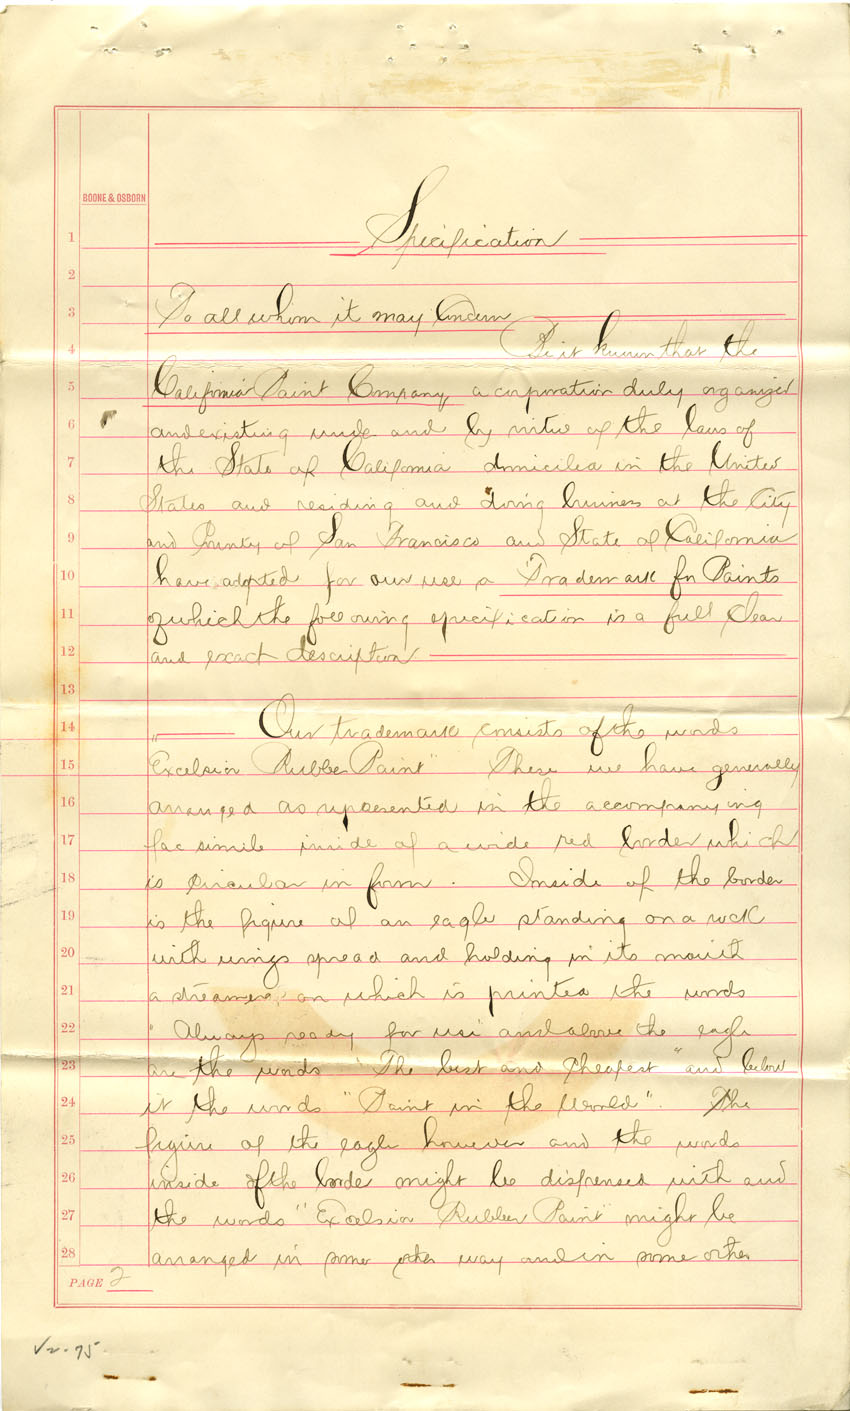 BOONE & OSBORN
1 Specification
2
3 To all whom it may Concern
4 Be it known that the
5 California Paint Company, a corporation duly organized
6 and existing under and by virtue of the laws of
7 the State of California domiciled in the United
8 States and residing and doing business at the City
9 and County of San Francisco and State of California
10 have adopted for our use a Trademark for Paints
11 of which the following specification is a full clear
12 and exact description
13
14 " Our trademark consists of the words
15 Excelsior Rubber Paint" These we have generally
16 arranged as represented in the accompanying
17 fac simile inside of a wide red border which
18 is circular in form. Inside of the border
19 is the figure of an eagle standing on a rock
20 with wings spread and holding in its mouth
21 a streamer, on which is printed the words
22 "Always ready for use" and above the eagle
23 are the words "The best and Cheapest" and below
24 it the words "Paint in the World". The
25 figure of the eagle however and the words
26 inside of the border might be dispensed with and
27 the words "Excelsior Rubber Paint" might be
28 arranged in some other way and in some other
PAGE 2